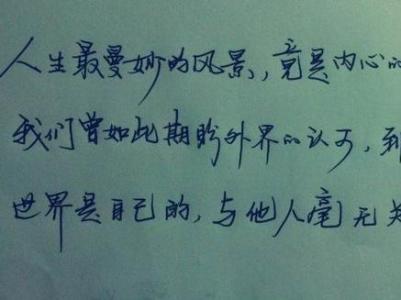 人生最曼妙的风景，竟是内心的
我们曾如此期盼外界的认可，到
世界是自己的，与他人毫无关